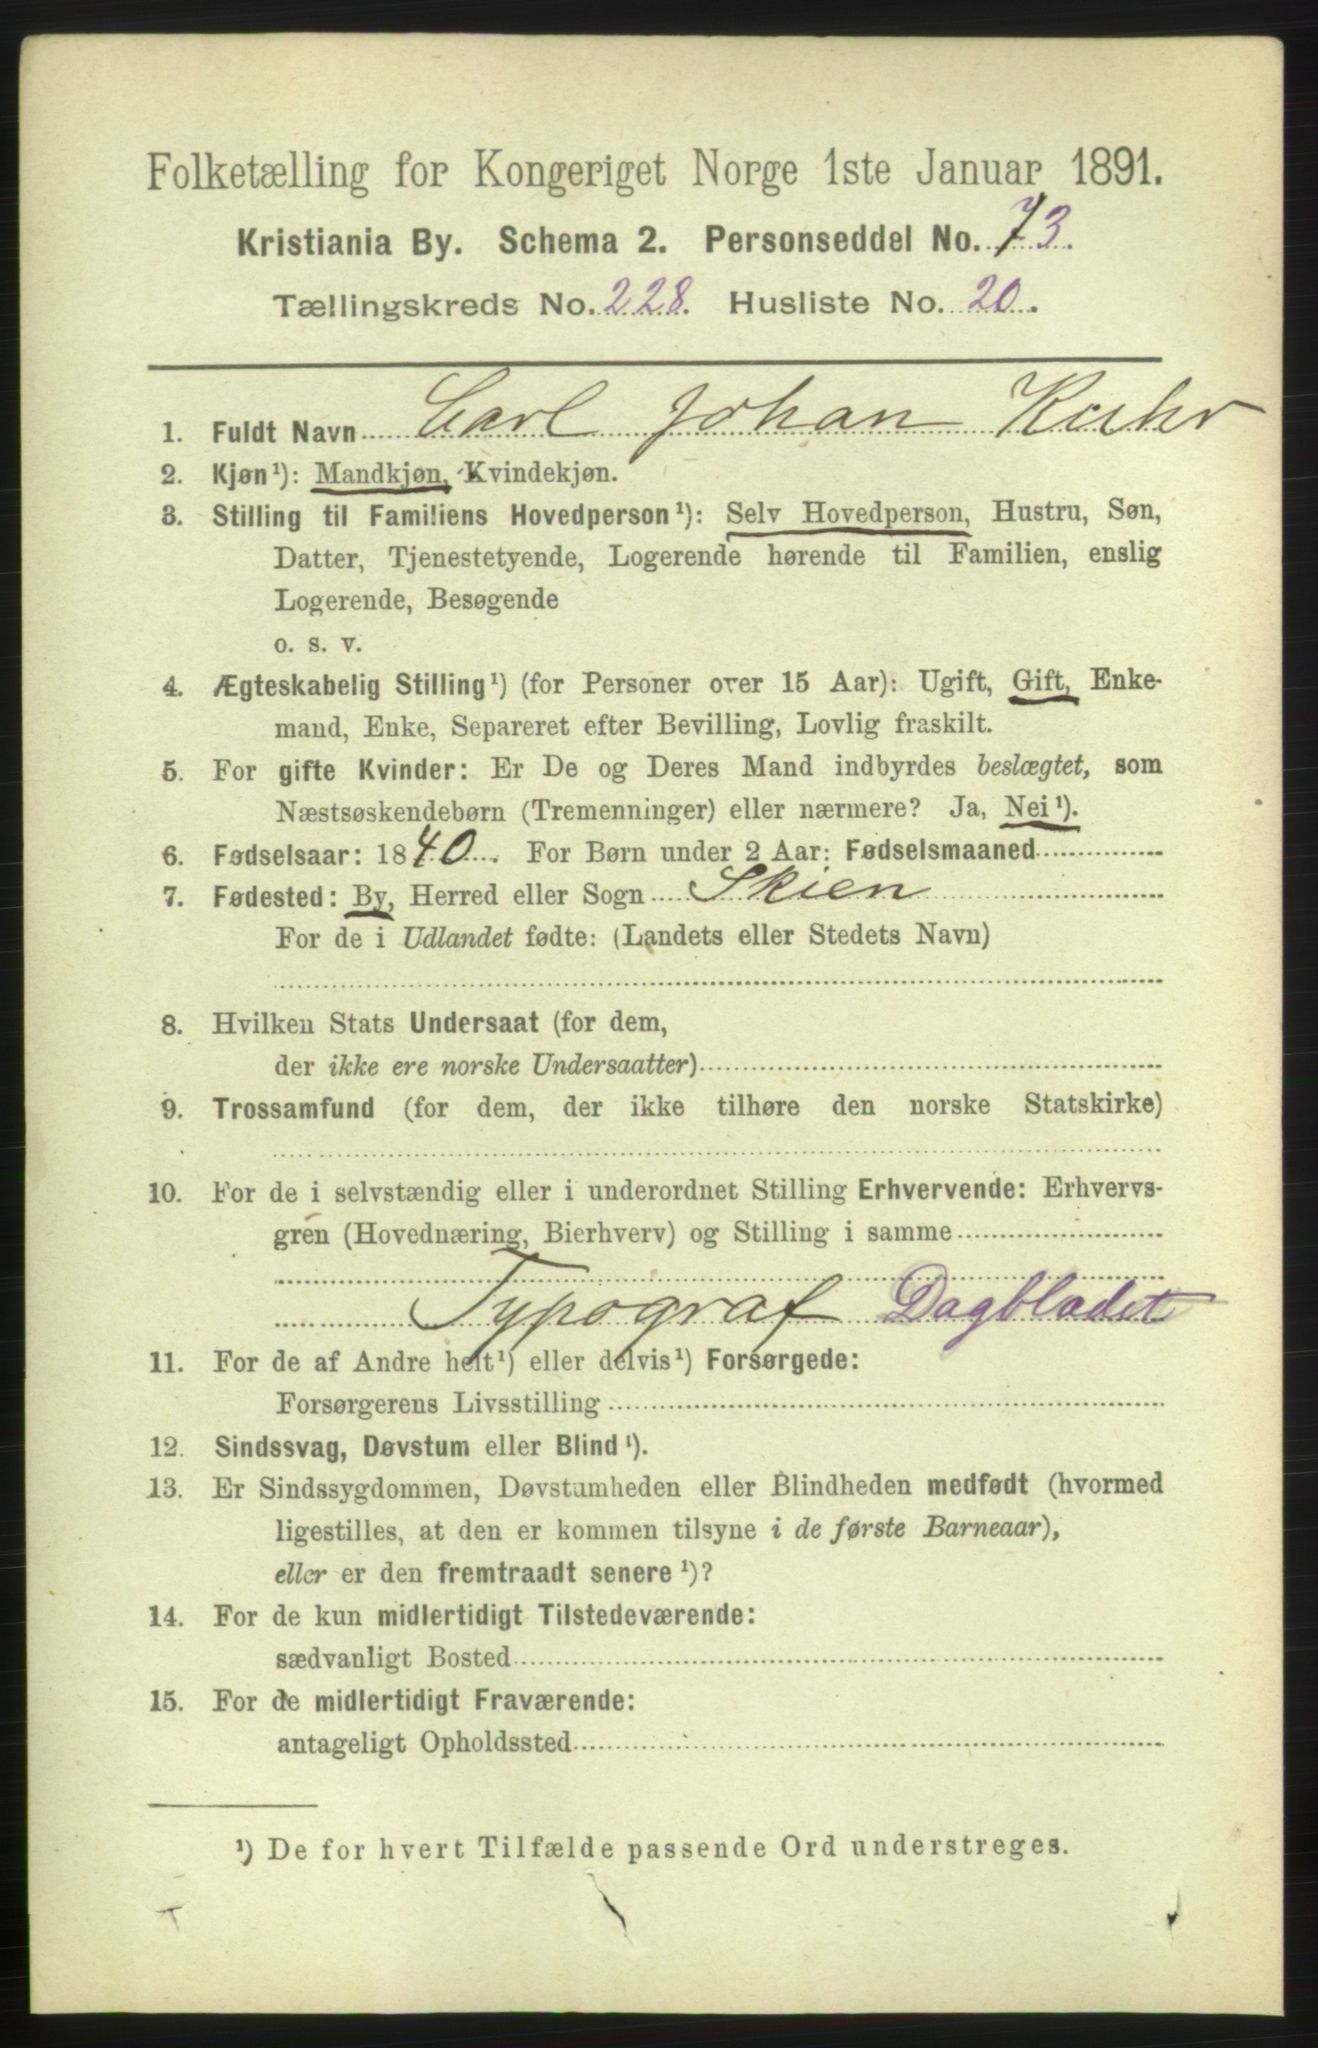 Folketælling for Kongeriget Norge 1ste Januar 1891.
Kristiania By. Schema 2. Personseddel No. 73.
Tællingskreds No. 228. Husliste No. 20.
1. Fuldt Navn Carl Johan Kuhr
2. Kjøn¹): Mandkjøn, Kvindekjøn.
3. Stilling til Familiens Hovedperson¹): Selv Hovedperson, Hustru, Søn,
Datter, Tjenestetyende, Logerende hørende til Familien, enslig
Logerende, Besøgende
o. s. v.
4. Ægteskabelig Stilling¹) (for Personer over 15 Aar): Ugift, Gift, Enke-
mand, Enke, Separeret efter Bevilling, Lovlig fraskilt.
5. For gifte Kvinder: Er De og Deres Mand indbyrdes beslægtet, som
Næstsøskendebørn (Tremenninger) eller nærmere? Ja, Nei¹).
6. Fødselsaar: 1840. For Børn under 2 Aar: Fødselsmaaned
7. Fødested: By, Herred eller Sogn Skien
For de i Udlandet fødte: (Landets eller Stedets Navn)
8. Hvilken Stats Undersaat (for dem,
der ikke ere norske Undersaatter)
9. Trossamfund (for dem, der ikke tilhøre den norske Statskirke)
10. For de i selvstændig eller i underordnet Stilling Erhvervende: Erhvervs-
gren (Hovednæring, Bierhverv) og Stilling i samme
Typograf Dagbladet
11. For de af Andre helt¹) eller delvis¹) Forsørgede:
Forsørgerens Livsstilling
12. Sindssvag, Døvstum eller Blind¹).
13. Er Sindssygdommen, Døvstumheden eller Blindheden medfødt (hvormed
ligestilles, at den er kommen tilsyne i de første Barneaar),
eller er den fremtraadt senere¹)?
14. For de kun midlertidigt Tilstedeværende:
sædvanligt Bosted
15. For de midlertidigt Fraværende:
antageligt Opholdssted
¹) De for hvert Tilfælde passende Ord understreges.